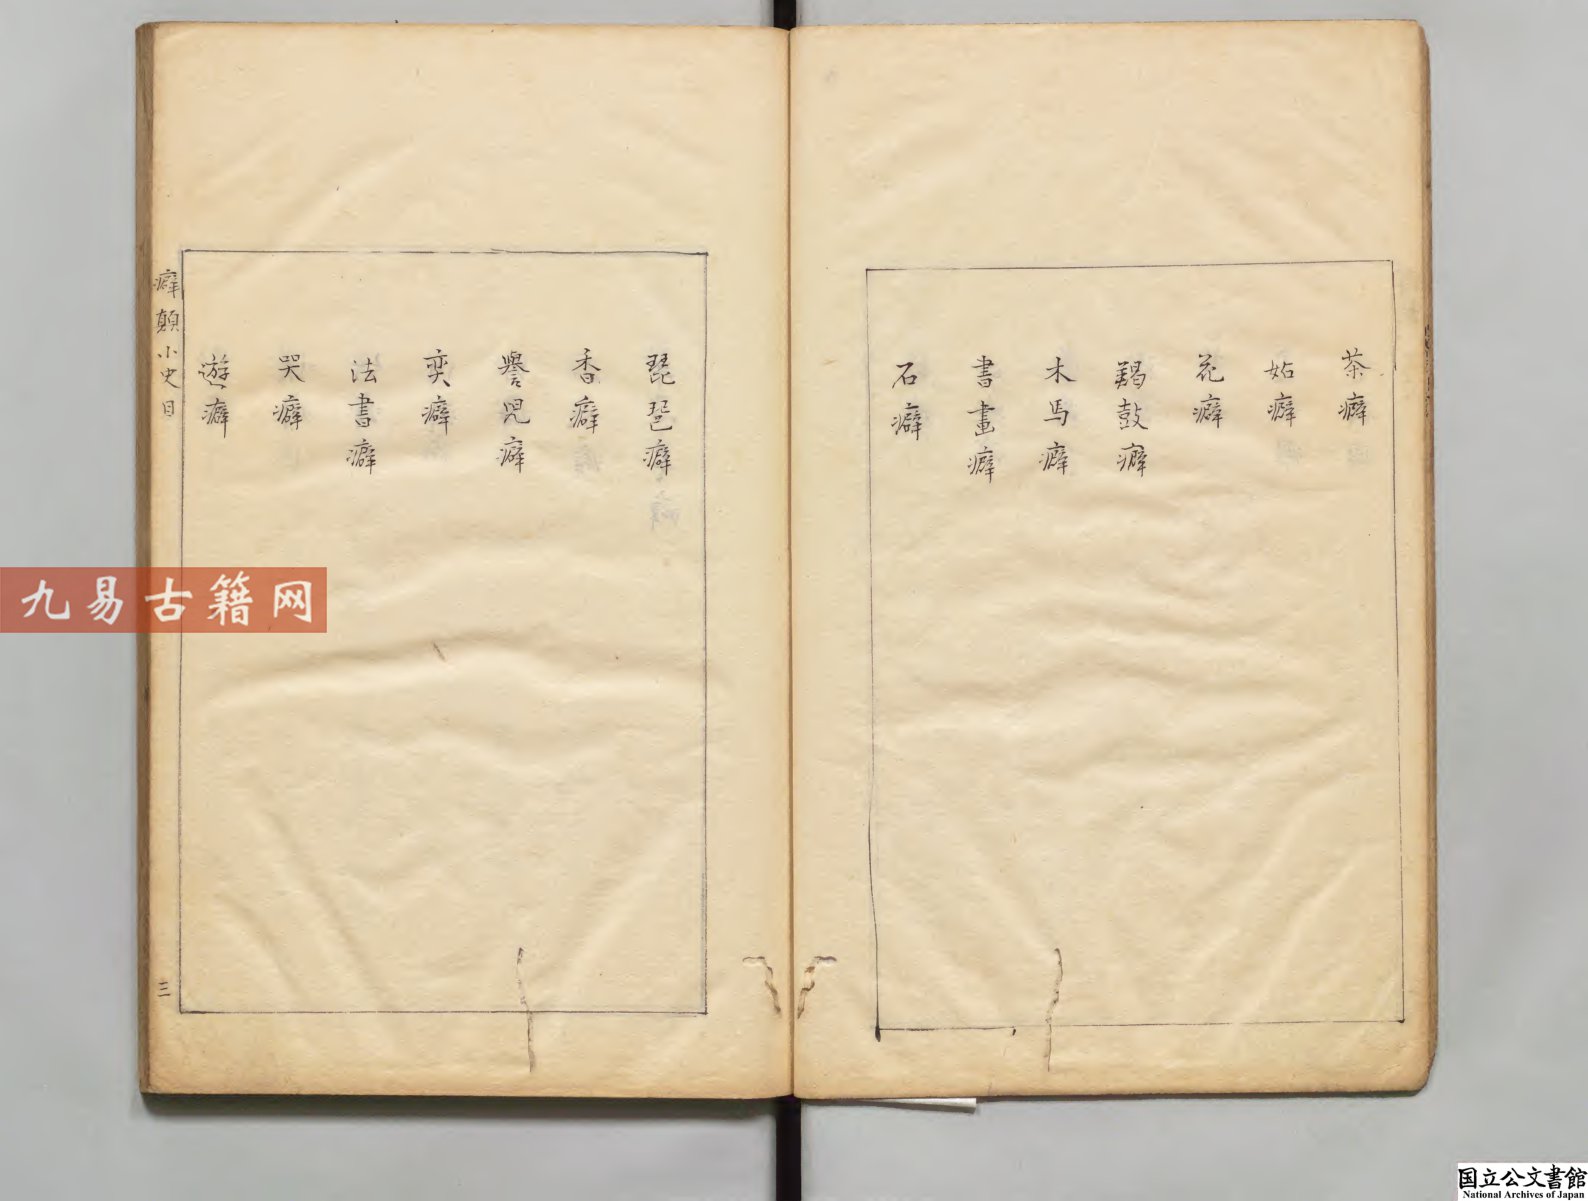 茶癖
妬癖
花癖
羯鼓癖
木馬癖
書畫癖
石癖
琵琶癖
香癖
譽兒癖
奕癖
法書癖
哭癖
遊癖
癖顛小史目
三
九易古籍网
国立公文書館
National Archives of Japan